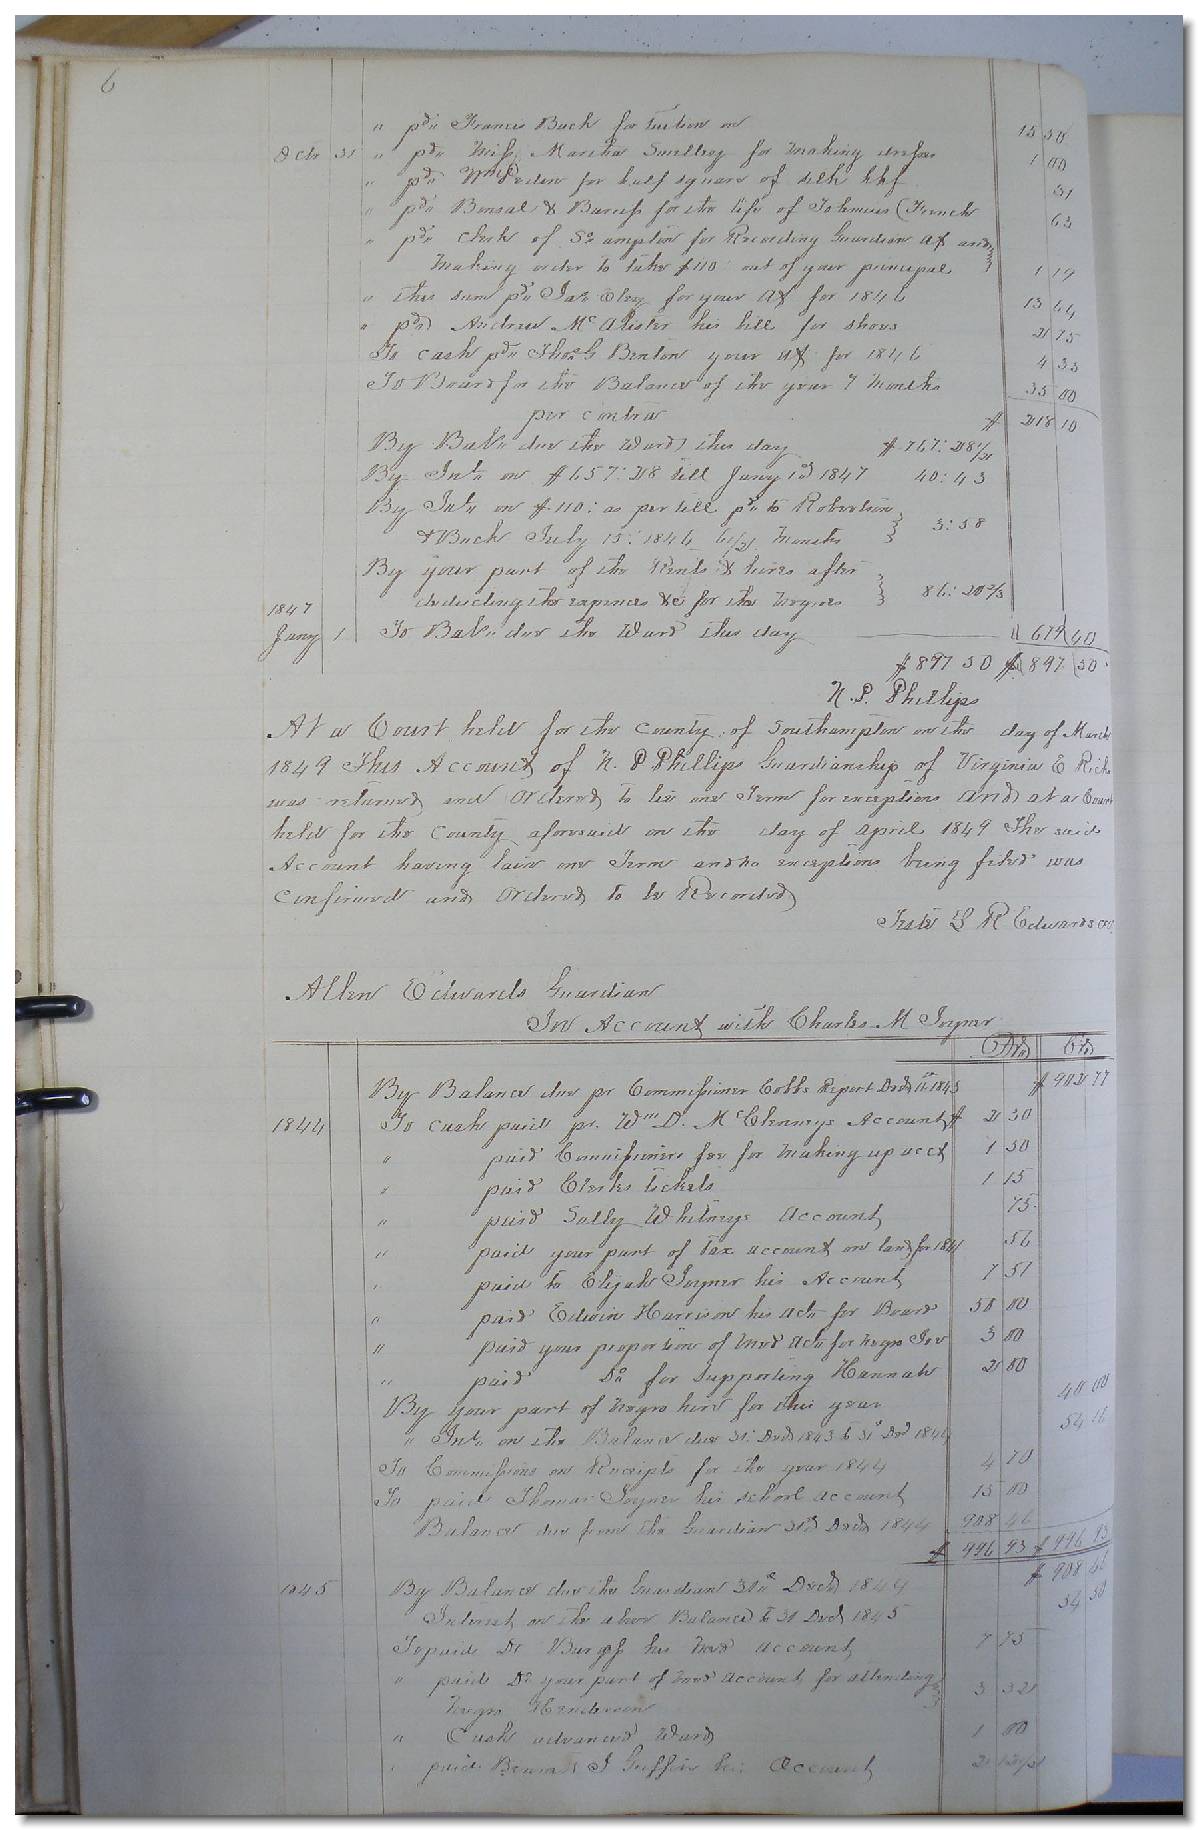 6
" pd. Francis Buck for tuition on 15 50
Octr 31 " pd. Miss Martha Smelley for making dress 1 00
" pd. Wm Peden for half square of silk hkf 31
" pd. Bonsal & Burness for the life of Johnnies (French 63
" pd. Clerk of So. ampton for Recording Guardian a/c and
making order to take $110 out of your principal 1 19
" this sum pd. Jas Eley for your a/c for 1846 13 44
" pd. Andrew Mc Alister his bill for shoes 2 75
To cash pd. Thos G Benton your a/c for 1846 4 33
To Board for the Balance of the year 7 Months 35 00
per contra $ 218 10
By Bale. due the Ward this day $ 767: 28 1/2
By Int. on $657: 28 till Jany 1st 1847 40: 43
By Int. on $110: as per bill pd. to Robertson
& Buck July 15: 1846 6 1/2 Months 3: 58
By your part of the Rents & hires after
deducting the expences &c for the Negroes 86: 20 2/3
1847
Jany 1 To Bale. due the Ward this day " 679 40
$ 897 50 $ 897 50
N. P. Phillips
At a Court held for the County of Southampton on the day of March
1849 This Account of N. P Phillips Guardianship of Virginia E Ricks
was returned and Ordered to lie one Term for exceptions and at a Court
held for the County aforesaid on the day of April 1849 The said
Account having lain one Term and no exceptions being filed was
Confirmed and Ordered to be Recorded
Teste L R Edwards
Allen Edwards Guardian
In Account with Charles M Joyner
Drs Crs
By Balance due pr Commissioner Cobbs Report Decr 1843 $ 902 77
1844 To cash paid pr. Wm D. McClennys Account $ 2 50
" paid Commissioners fee for making up acct 1 50
" paid Clerks tickets 1 15
" paid Sally Whitneys Account 75
" paid your part of Tax account on land for 1841 56
" paid to Elijah Joyner his Account 7 51
" paid Edwin Harrison his Act. for Board 50 00
" paid your proportion of Med Act. for Negro Joe 3 00
" paid Do for supporting Hannah 2 00
By your part of Negro hire for this year 40 00
" Int. on the Balance due 31st Decr 1843 to 31st Decr 1844 54 16
To Commissions on Receipts for the year 1844 4 70
To paid Thomas Joyner his school account 15 00
Balance due from the Guardian 31st Decr 1844 908 46
$ 996 93 $ 996 93
1845 By Balance due the Guardian 31st Decr 1844 $ 908 46
Interest on the above Balance to 31 Decr 1845 54 50
To paid Dr Burgess his Med account 7 75
" paid Do your part of Med account for attending
Negro Henderson 3 32
" Cash advanced Ward 1 00
" paid J Griffin his Account 2 12 1/2